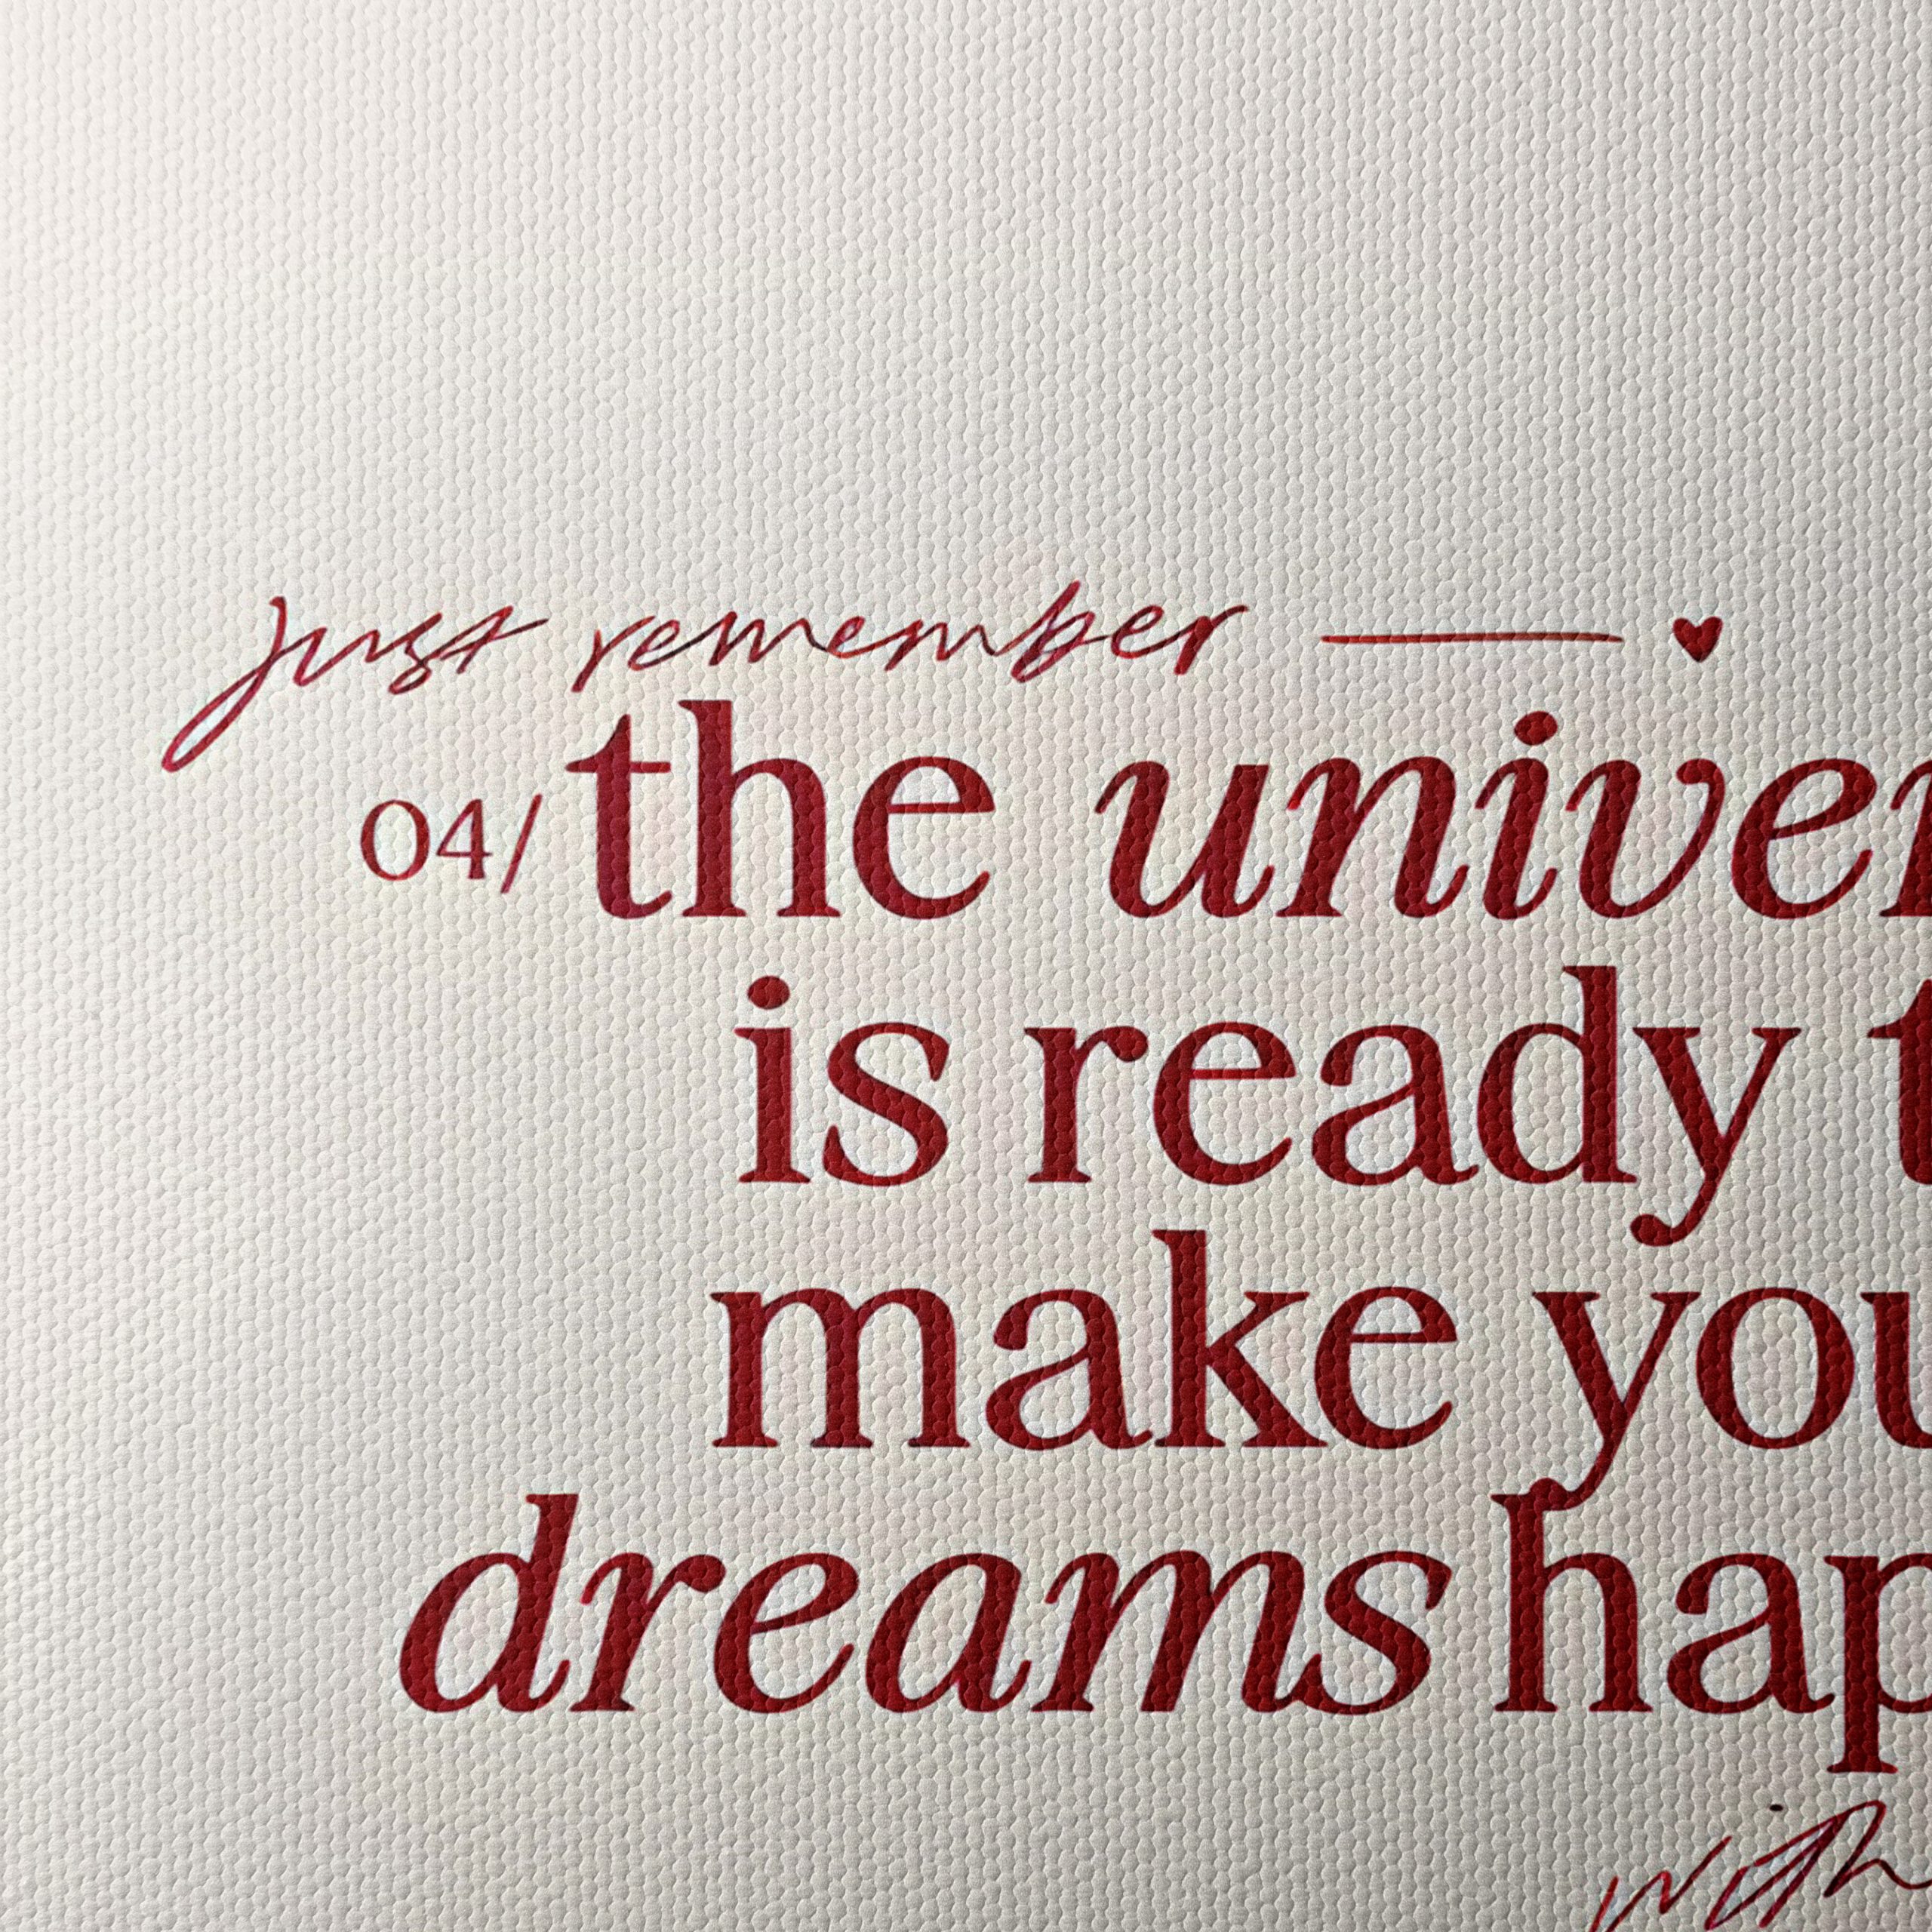 just remember — ♥
04/ the univer
is ready t
make you
dreams hap
with